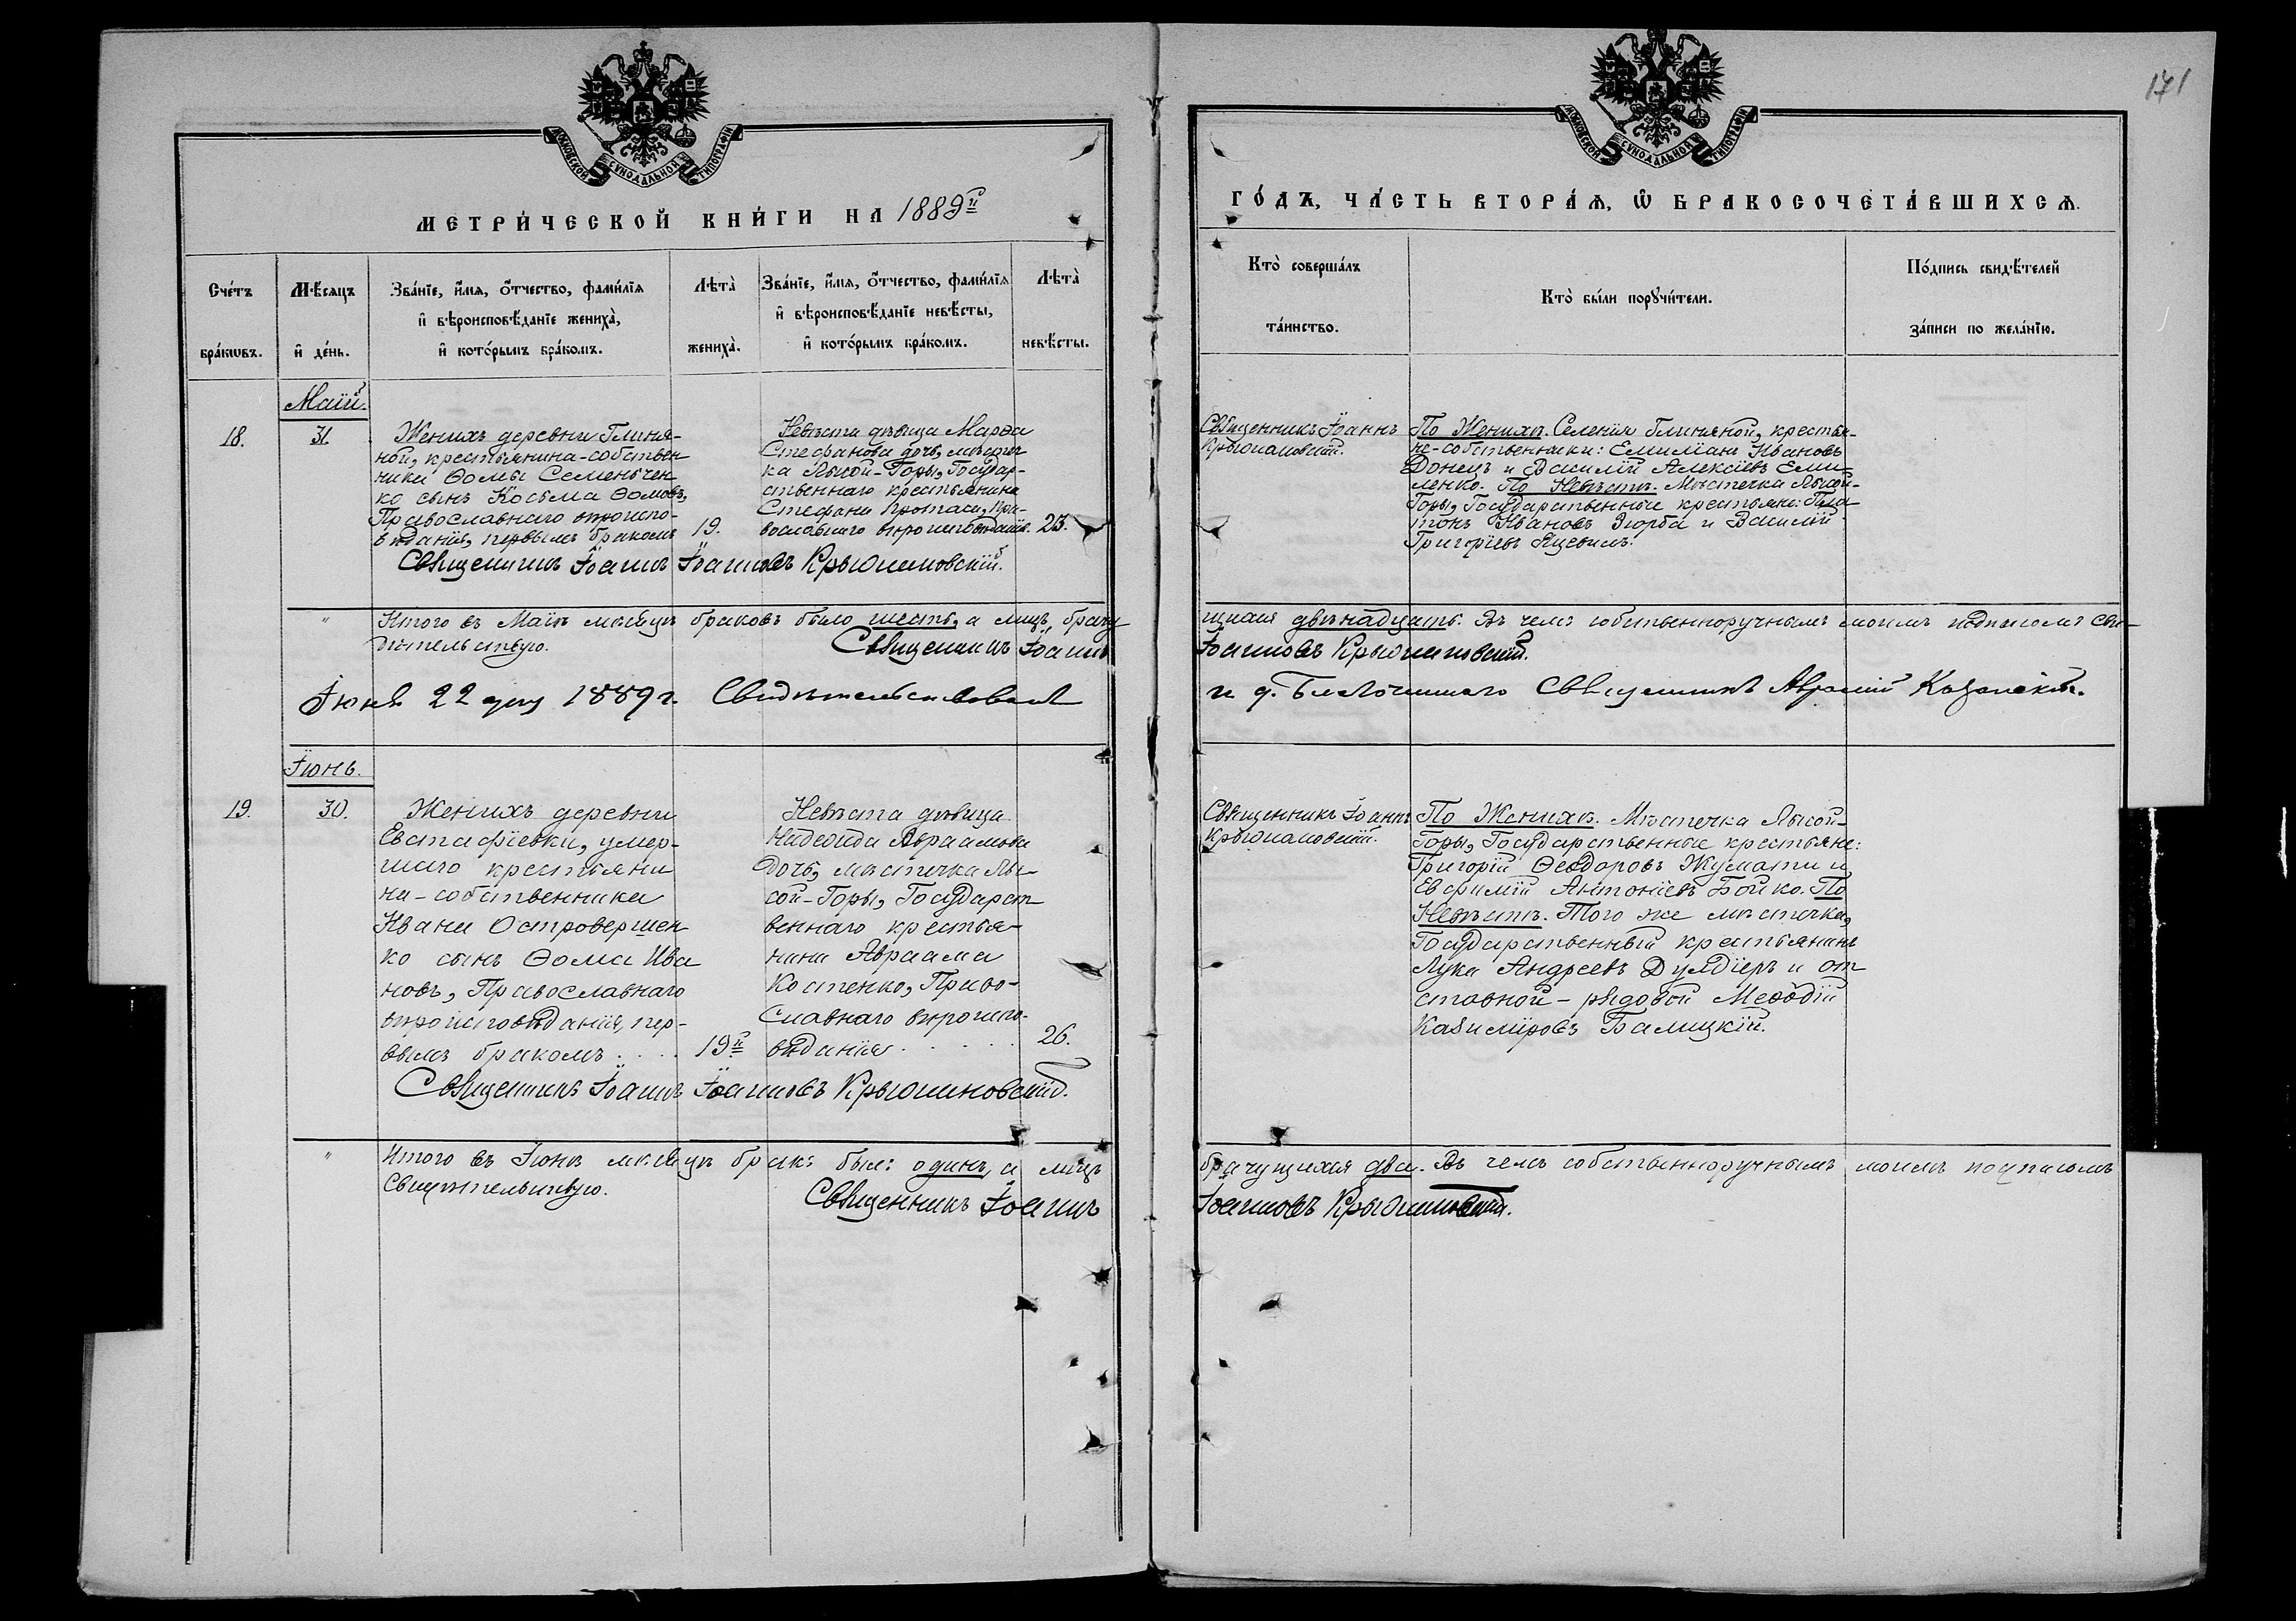 171
МОСКОВСКОЙ СѴНОДАЛЬНОЙ ТИПОГРАФІИ
МОСКОВСКОЙ СѴНОДАЛЬНОЙ ТИПОГРАФІИ
МЕТРИ́ЧЕСКОЙ КНИ́ГИ НА 1889й
ГО́ДЪ, ЧА́СТЬ ВТОРА́Я, Ѿ БРАКОСОЧЕТА́ВШИХСЯ.
Сче́тъ бра́кѡвъ.
Мѣ́сяцъ и҆ де́нь.
Зва́нїе, и҆́мя, ѻ҆́тчество, фами́лїя
и҆ вѣроисповѣ́данїе жениха̀,
и҆ кото́рымъ бра́комъ.
Лѣта̀ жениха̀.
Зва́нїе, и҆́мя, ѻ҆́тчество, фами́лїя
и҆ вѣроисповѣ́данїе невѣ́сты,
и҆ кото́рымъ бра́комъ.
Лѣта̀ невѣ́сты.
Кто̀ соверша́лъ
та́инство.
Кто̀ бы́ли порꙋчи́тели.
По́дпись свидѣ́телей
за́писи по жела́нїю.
Маїй.
18.
31.
Женихъ деревни Глиня-
ной, крестьянина-собствен
ника Ѳомы Семеньчен
ко сынъ Косьма Ѳомовъ,
Православнаго вѣроиспо-
вѣданія, первымъ бракомъ
19.
Невѣста дѣвица Марѳа
Стефанова дочь, мѣстеч
ка Лысой-Горы, Государ-
ственнаго крестьянина
Стефана Протаси, Пра-
вославнаго вѣроисповѣданія.
23.
Священникъ Іоаннъ Іоанновъ Крыжановскій.
Священникъ Іоаннъ
Крыжановскій.
По Женихѣ. Селенія Глиняной, крестья-
не-собственники: Емиліанъ Ивановъ
Донецъ и Василій Алексіевъ Еми
ленко. По Невѣстѣ. Мѣстечка Лысой-
Горы, Государственные крестьяне: Пла
тонъ Ивановъ Зюрба и Василій
Григоріевъ Яцевилъ.
" Итого въ Маїѣ мѣсяцѣ браковъ было шесть, а лицъ, брачу
щихся двѣнадцать. Въ чемъ собственноручнымъ моимъ подписомъ сви-
дѣтельствую. Священникъ Іоаннъ
Іоанновъ Крыжановскій.
Іюня 22 дня 1889 г. Свидѣтельствовалъ
и. д. Благочиннаго Священникъ Авраамій Казанскій.
Іюнь.
19.
30.
Женихъ деревни
Евстафіевки, умер-
шаго крестьяни
на-собственника
Ивана Островершен
ко сынъ Ѳома Ива
новъ, Православнаго
вѣроисповѣданія, пер-
вымъ бракомъ . . . .
19й
Невѣста дѣвица
Надежда Авраамова
Дочь, мѣстечка Лы-
сой-Горы, Государст
веннаго крестья-
нина Авраама
Костенко, Право-
славнаго вѣроиспо-
вѣданія . . . . .
26.
Священникъ Іоаннъ Іоанновъ Крыжановскій.
Священникъ Іоаннъ
Крыжановскій.
По Женихѣ. Мѣстечка Лысой-
Горы, Государственные крестьяне:
Григорій Ѳеодоровъ Жусмати и
Евфимій Антоніевъ Бойко. По
Невѣстѣ. Того же мѣстечка,
Государственный крестьянинъ
Лука Андреевъ Дулдіеръ и от
ставной-рядовой Меѳодій
Казиміровъ Балицкій.
" Итого въ Іюнѣ мѣсяцѣ бракъ былъ одинъ, а лицъ
брачущихся два. Въ чемъ собственноручнымъ моимъ подписомъ
свидѣтельствую. Священникъ Іоаннъ
Іоанновъ Крыжановскій.